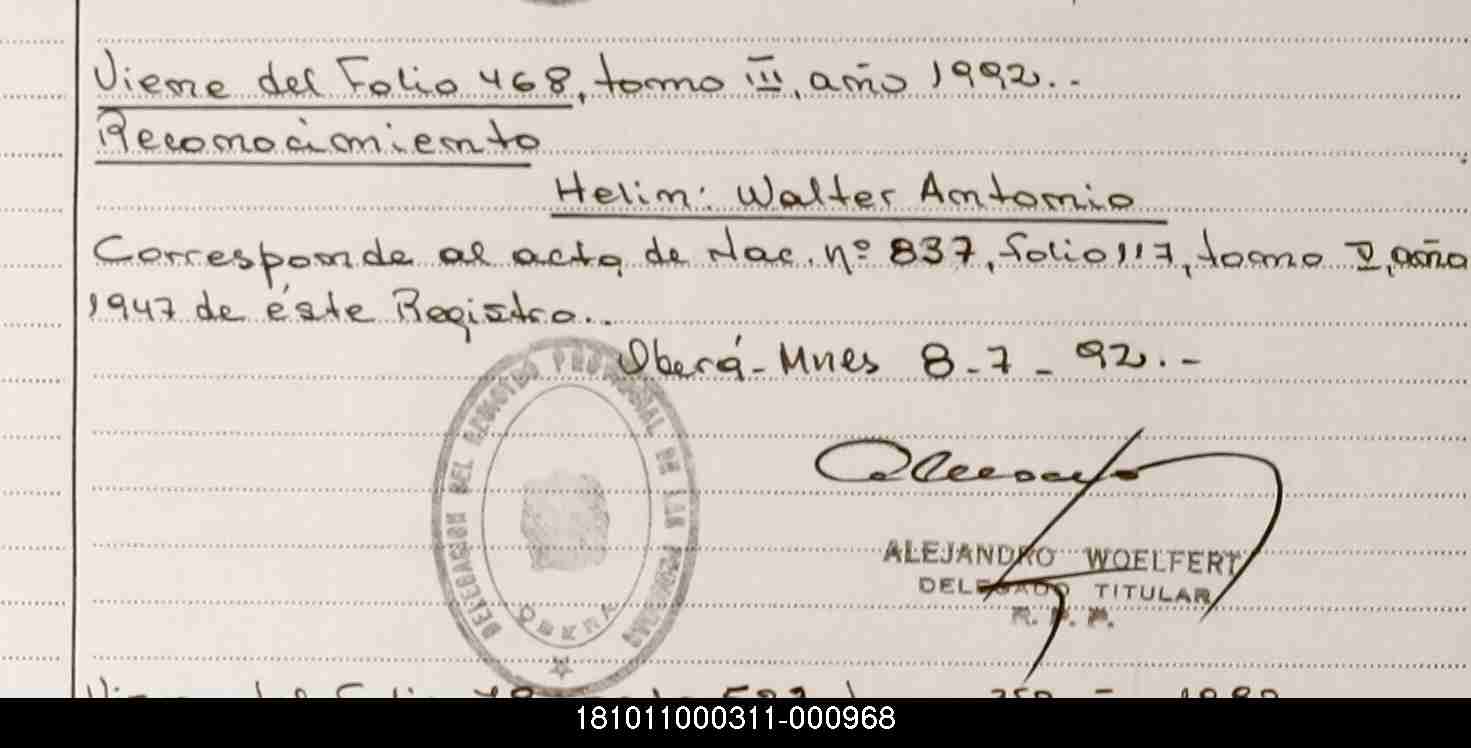 Viene del Folio 468, tomo III, año 1992.-
Reconocimiento
Helin: Walter Antonio
Corresponde al acta de Nac. nº 837, folio 117, tomo V, año
1947 de éste Registro..
Oberá - Mnes 8-7-92.-
DELEGACION DEL REGISTRO PROVINCIAL DE LAS PERSONAS
OBERA
ALEJANDRO WOELFERT
DELEGADO TITULAR
R. P. P.
181011000311-000968